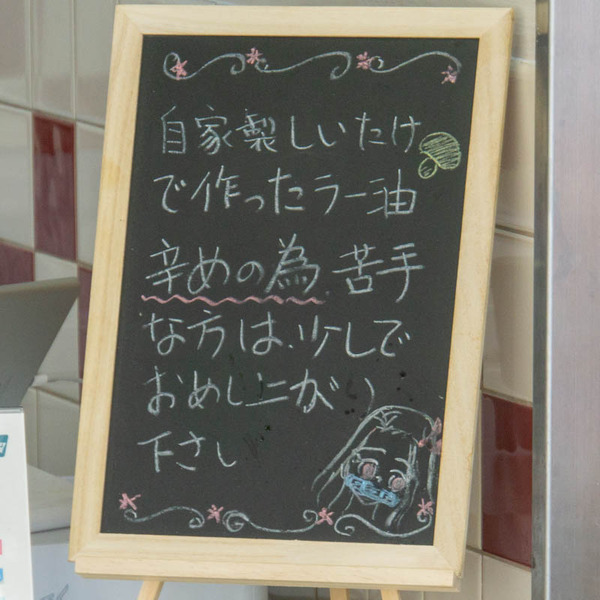 自家製しいたけ
で作ったラー油
辛めの為 苦手
な方は、少しで
おめし上がり
下さい